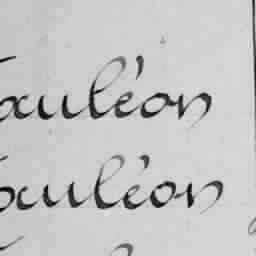 auléon
auléon